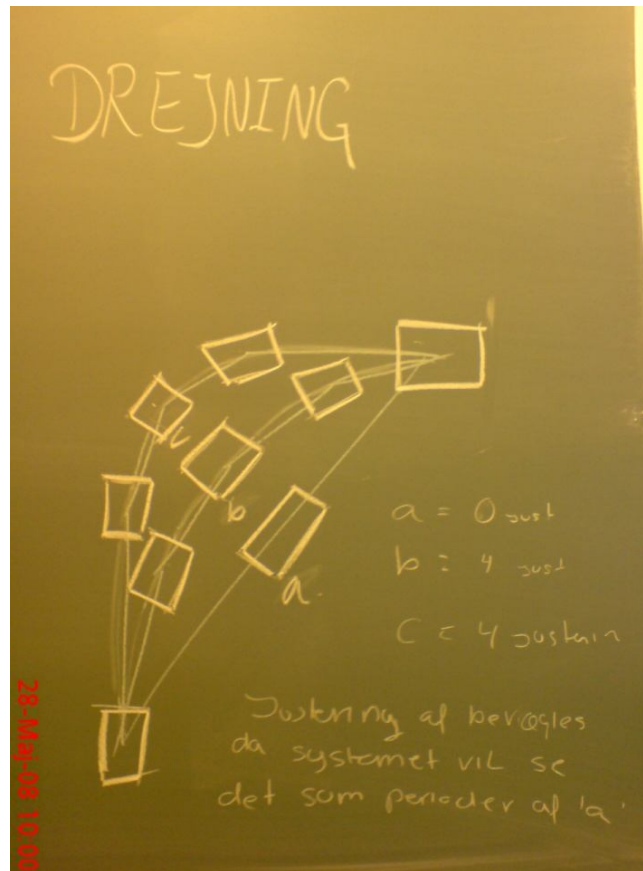 DREJNING
c
b
a.
a = 0 just
b = 4 just
c = 4 justering
Justering af bevægles
da systemet vil se
det som perioder af 'a'
28-Maj-08 10:00